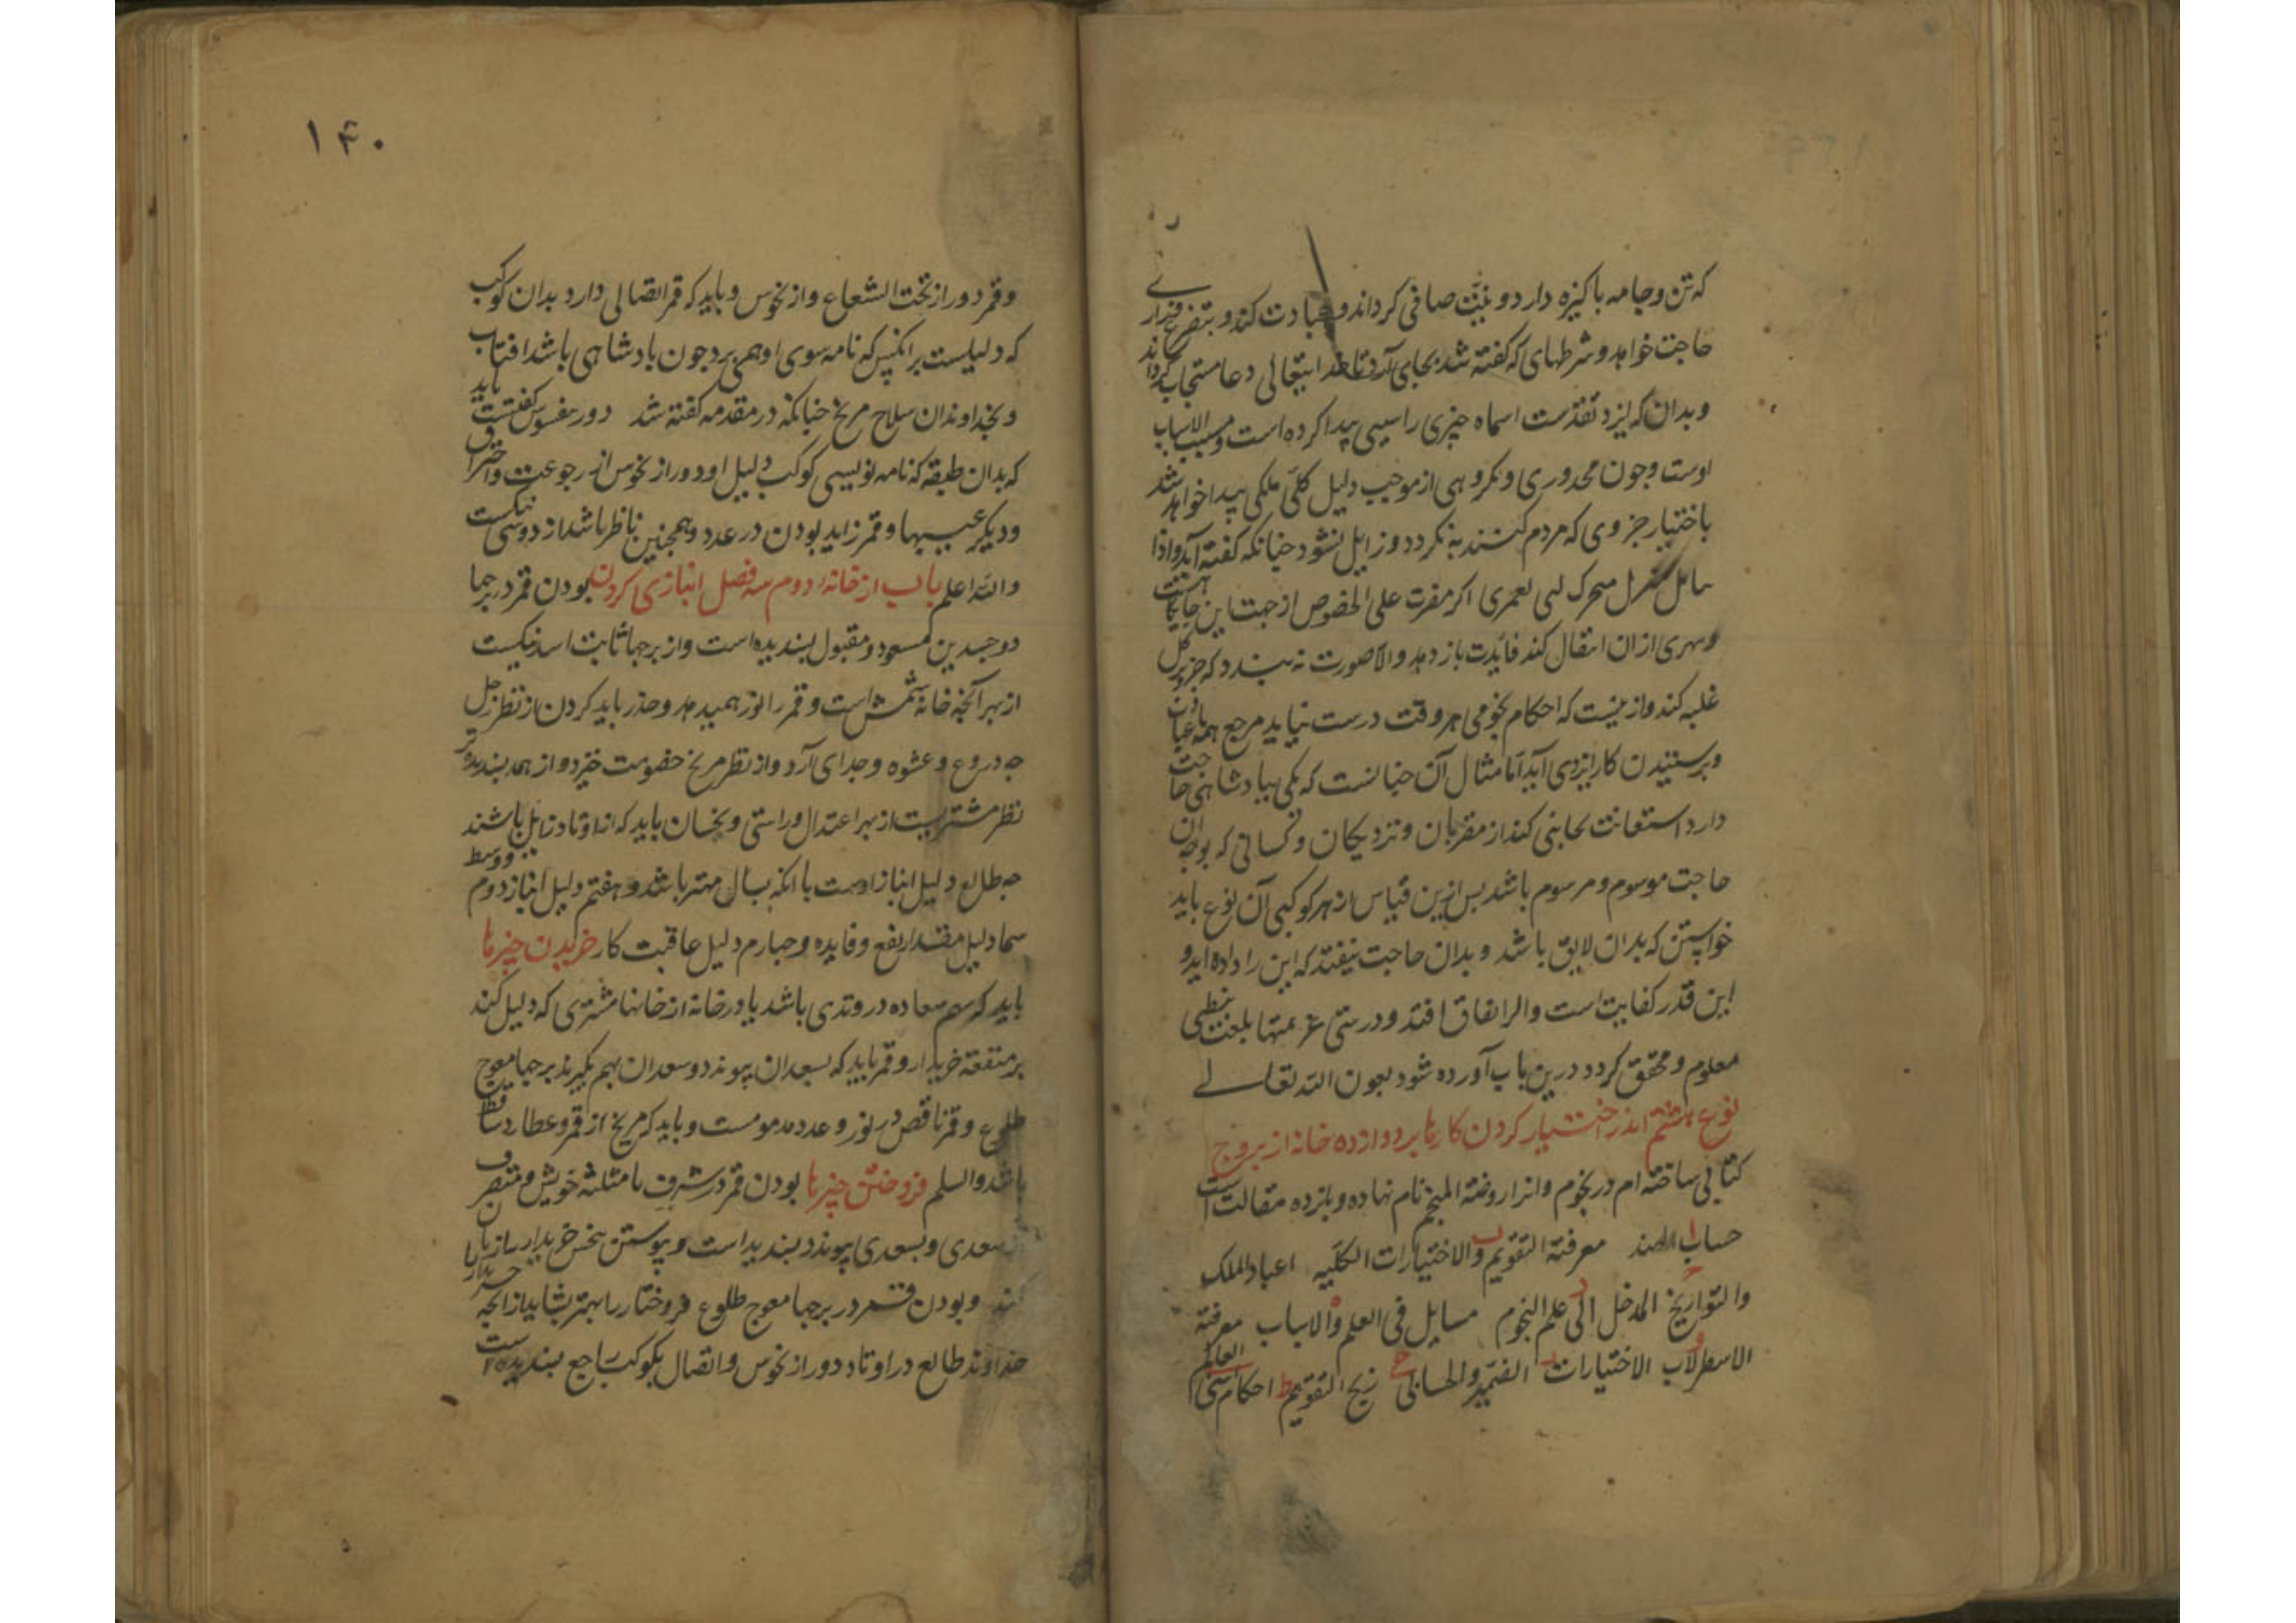 که تن و جامه باکیزه دارد و نیت صافی کرداند و عبادت کند و بتضرع وزاری
حاجت خواهد و شرطهای که کفته شد بجای آرد تا خدایتعالی دعا مستجاب کرداند
و بدان که ایزد تقدست اسماه چیزی را سببی پیدا کرده است و مسبب الاسباب
اوست و جون محدوری و مکروهی از موجب دلیل کلی ملکی پیدا خواهد شد
باختیار جزوی که مردم کنند به نکردد و زایل نشود جنانکه کفته آید و اذا
لعمری اکر مضرت علی الخصوص از جهت این جایکا
ازان انتقال کند فائدت باز دهد والا صورت نه بندد که جزو بر کل
غلبه کند و ازینست که احکام نجومی هر وقت درست نیاید مرجع همه با
و برستیدن کار ایزدی آید اما مثال آن جنانست که یکی ببادشاهی حاجت
دارد استعانت بجانبی کند از مقربان و نزدیکان و کسانی که بوجه آن
حاجت موسوم و مرسوم باشد بس ازین قیاس از هر کوکبی آن نوع باید
خواستن که بدان لایق باشد و بدان حاجت نیفتد که این را داده اید و
این قدر کفایت است و الر اتفاق افتد و درستی عزیمتها بلغت نبطی
معلوم و محقق کردد درین باب آورده شود بعون الله تعالے
نوع هشتم اندر اختیار کردن کارها بر دوازده خانه از بروج
کتابی ساخته ام در نجوم وانرا روضة المنجم نام نهاده و بانزده مقالت است
ا حساب الهند ب معرفة التقویم والاختیارات الکلیه ج اعیاد الملک
والتواریخ د المدخل الی علم النجوم ه مسایل فی العلم والاسباب و معرفة
الاسطرلاب ز الاختیارات ح الضمیر والحسابی ط زیج التقویم ی احکام سنی العالم
۱۴۰
و قمر دور از تحت الشعاع و از نحوس و باید که قمر اتصالی دارد بدان کوکب
که دلیلست بر انکس که نامه سوی او همی برد جون بادشاهی باشد افتاب باید
و بخداوندان سلاح مریخ جنانکه در مقدمه کفته شد دور
که بدان طبقه که نامه نویسی کوکب دلیل او دور از نحوس از رجوعت و احتراق
و دیکر عیبها و قمر زاید بودن در عدد و همجنین ناظر باشد از دوستی نیکست
والله اعلم باب از خانه دوم سه فصل انبازی کردن بودن قمر در برجها
دو جسدین مسعود و مقبول بسندیده است و از برجها ثابت اسد نیکست
از بهر آنجه خانه شمس است و قمر را نور همیدهد و حذر باید کردن از نظر زحل
جه دروغ و عشوه و جدای آرد و از نظر مریخ خصومت خیزد و از همه بسندیده تر
نظر مشتریست از بهر اعتدال و راستی و نحسان باید که از اوتاد زایل باشند
جه طالع دلیل انباز اوست با انکه بسال مهتر باشد و هفتم دلیل انباز دوم و وسط
سما دلیل مقدار نفع و فایده و جهارم دلیل عاقبت کار خریدن چیزها
باید که سهم سعاده در وتدی باشد یا در خانه از خانها مشتری که دلیل کند
بر منفعة خریدار و قمر باید که بسعدان پیوندد و سعدان بهم بکیرند بر جها معوج
طلوع و قمر ناقص در نور و عدد مدمومست و باید که مریخ از قمر و عطارد ساقط
باشد والسلم فروختن چیزها بودن قمر در شرف یا مثلثه خویش و منصرف
از سعدی و بسعدی پیوندد بسندیداست و پیوستن بنحس خریدار را زیان
کند و بودن قمر در برجها معوج طلوع فروختار را بهتر بشاید از انجه خریدار را
خداوند طالع در اوتاد دور از نحوس و اتصال بکوکب راجع بسندیده است